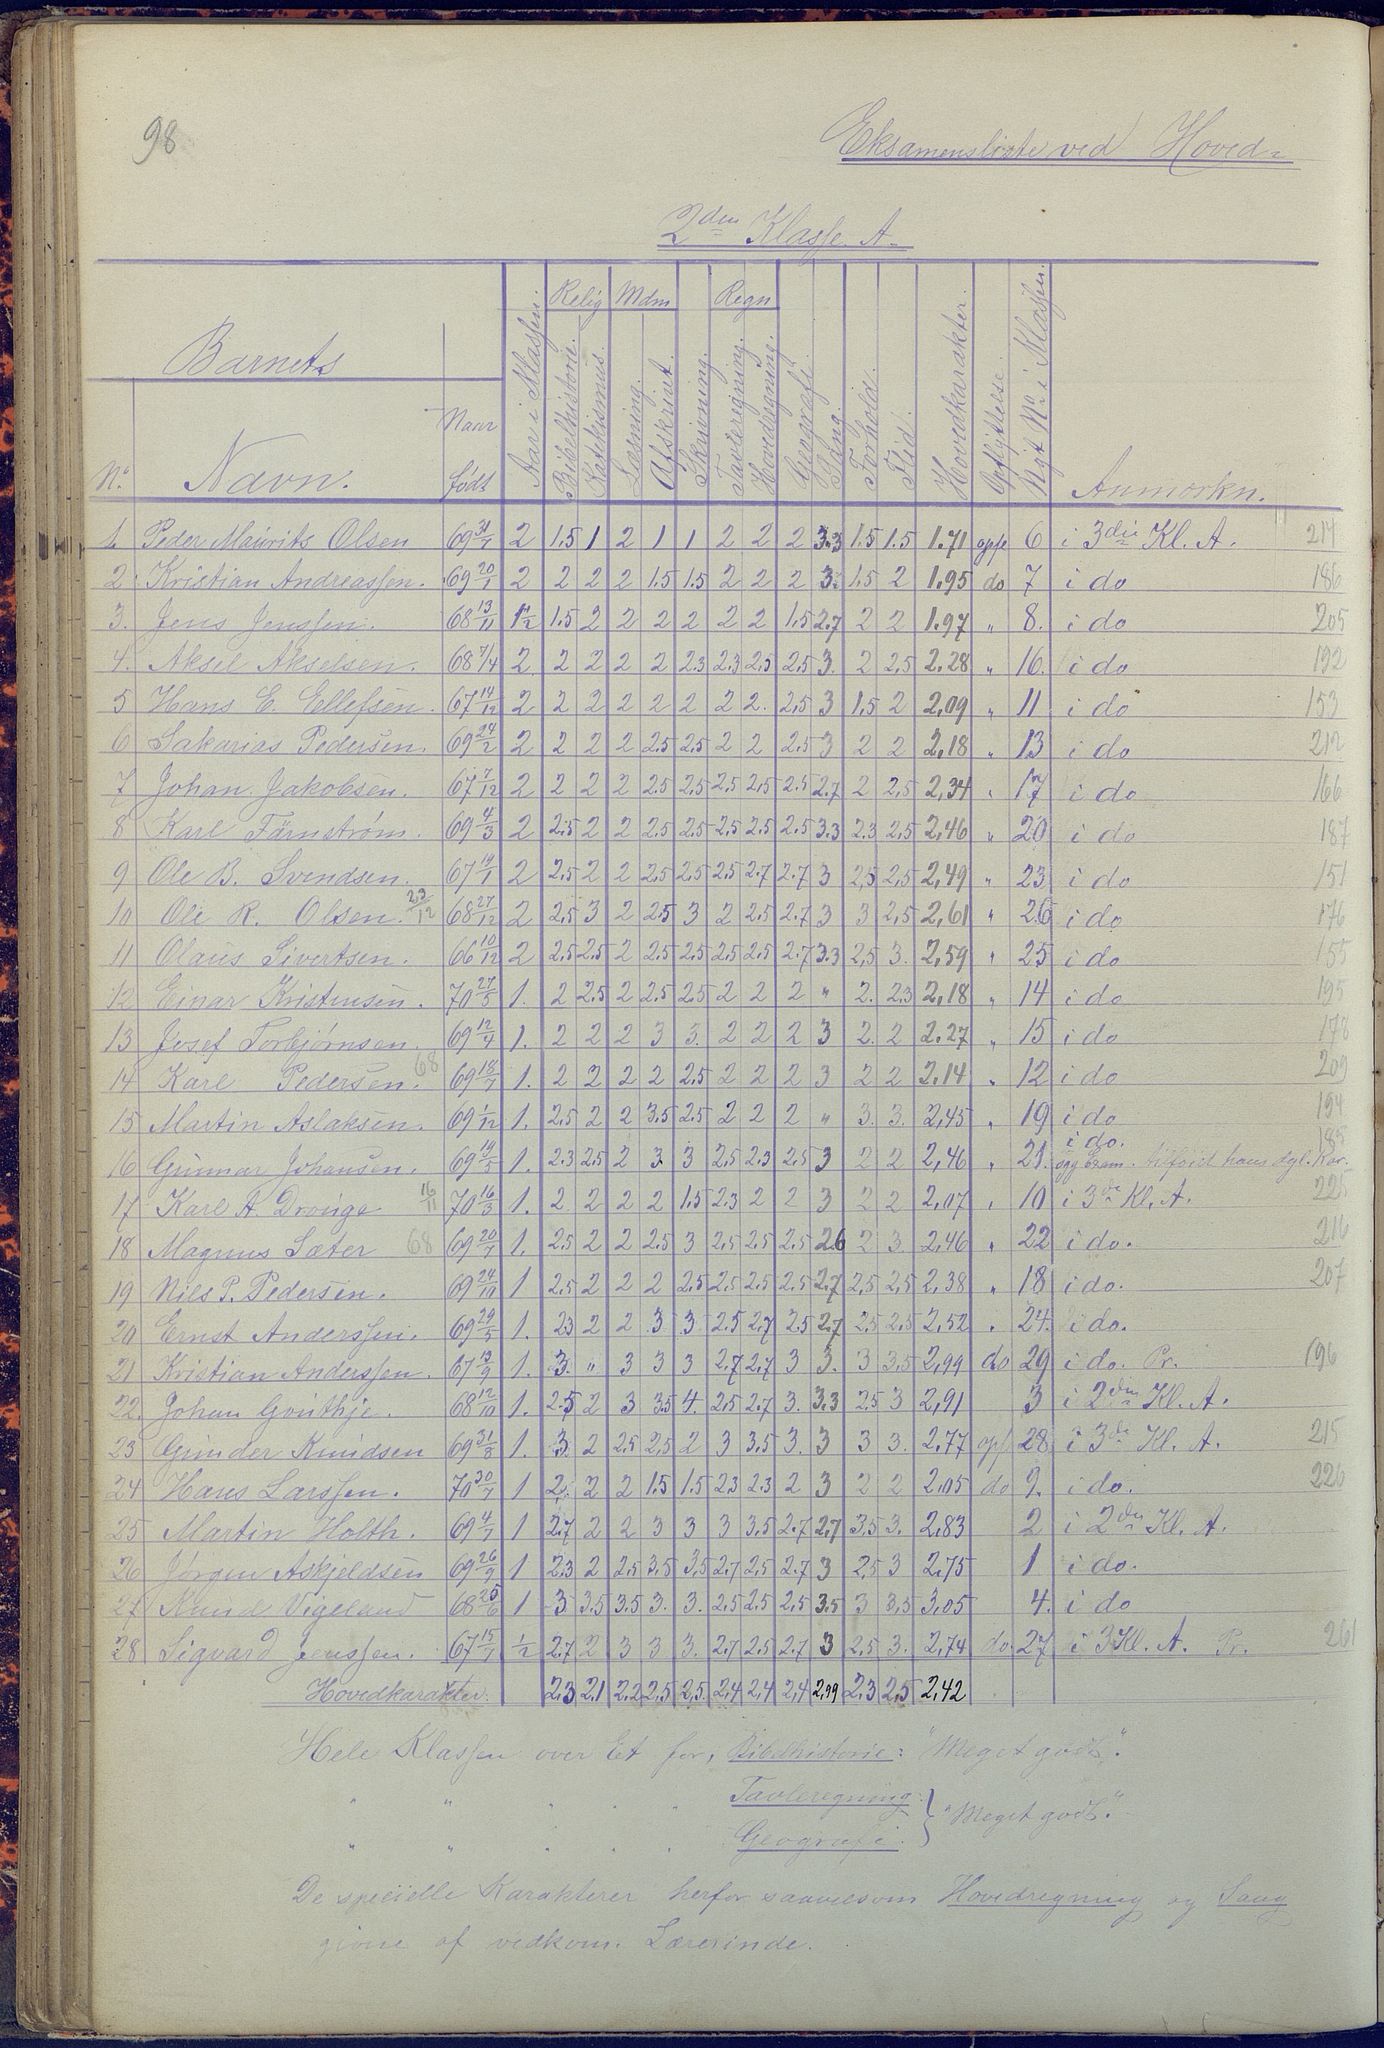 98
Eksamensliste ved Hoved-
2den Klasse. A.
Barnets
Nº Navn. Naar født Aar i Klassen. Relig Bibelhistorie. Katekismus. Mdm Læsning. Afskrivt. Skrivning. Regn Tavleregning. Hovedregning. Geografi. Sang. Forhold. Flid. Hovedkarakter. Opflyttelse. Nyt Nº i Klassen. Anmærkn.
1. Peder Maurits Olsen 69 31/7 2 1.5 1 2 1 1 2 2 2 3.3 1.5 1.5 1.71 opf 6 i 3die Kl. A. 217
2. Kristian Andreassen. 69 20/1 2 2 2 2 1.5 1.5 2 2 2 3. 1.5 2 1.95 do 7 i do 186
3. Jens Jenssen. 68 13/11 1½ 1.5 2 2 2 2 2 2 1.5 2.7 2 2 1.97 " 8. i do 205
4. Aksel Akselsen. 68 7/4 2 2 2 2 2 2.3 2.3 2.5 2.5 3. 2 2.5 2.28 " 16. i do 192
5 Hans E. Ellefsen. 67 14/12 2 2 2 2 2 2 2 2. 2.5 3 1.5 2 2,09 " 11 i do 153
6 Sakarias Pedersen. 69 24/2 2 2 2 2 2.5 2.5 2 2 2.5 3 2 2 2,18 " 13 i do 212
7 Johan Jakobsen. 67 7/12 2 2 2 2 2.5 2.5 2.5 2.5 2.5 2.7 2 2.5 2,34 " 17 i do 166
8 Karl Färnstrøm. 69 4/3 2 2.5 2 2 2.5 2.5 2.5 2.5 2.5 3.3 2.3 2.5 2,46 " 20 i do 187
9 Ole B. Svendsen. 67 19/1 2 2.5 2 2 2.5 2.5 2.5 2.7 2.7 3 2,5 2.5 2,49 " 23 i do 151
10 Ole R. Olsen. 23/12 68 27/12 2 2.5 3 2 2.5 3 2 2.5 2.7 3 3 2,5 2,61 " 26 i do 176
11 Olaus Sivertsen. 66 10/12 2 2.5 2.5 2 2.5 2.5 2.5 2.5 2.7 3.3 2,5 3. 2,59 " 25 i do 155
12 Einar Kristensen. 70 27/5 1. 2 2.5 2 2.5 2.5 2 2 2 " 2. 2.3 2,18 " 14 i do 195
13 Josef Torbjørnsen. 69 12/4 1. 2 2 2 3 3. 2 2 2 3 2. 2 2.27 " 15 i do 178
14 Karl Pedersen. 68 69 18/7 1. 2 2 2 2 2.5 2 2 2 3 2 2 2.14 " 12 i do 209
15 Martin Aslaksen. 69 1/12 1. 2.5 2 2 3.5 2.5 2 2 2 " 3. 3. 2,45 " 19 i do 194
16 Gunnar Johansen. 69 19/5 1. 2.3 2.5 2 3 3 2,5 2.3 2.5 3 2 2 2,46 " 21. i do.
17 Karl A. Drange 16/11 70 16/3 1. 2 2 2 2 1.5 2.3 2 2 3 2 2 2,07 " 10 i 3de Kl. A. 225
18 Magnus Sæter 68 69 20/7 1. 2.5 2 2 2.5 3 2.5 2.5 2.5 2.6 2 3. 2,46 " 22 i do. 216
19 Nils P. Pedersen. 69 24/10 1 2.5 2 2 2 2.5 2.5 2.5 2.5 2.7 2,5 2,5 2,38 " 18 i do. 207
20 Ernst Anderssen. 69 29/5 1. 2.3 2 2 3 3. 2.5 2.7 2.5 2.7 2,5 2.5 2,52 " 24. i do.
21 Kristian Anderssen. 67 13/9 1. 3. " 3 3 3 2.7 2.7 3 3. 3 3,5 2,99 do 29 i do. Pr. 196
22. Johan Gouthje. 68 12/10 1. 2.5 2 3 3.5 4. 2.5 2.7 3. 3.3 2.5 3 2,91 3 i 2den Kl. A.
23 Gunder Knudsen 69 31/8 1. 3. 2 2.5 2.5 2 3 3.5 3. 3 3 3. 2,77 opf 28 i 3de Kl. A. 215
24 Hans Larssen. 70 30/7 1 2. 2 2 1.5 1.5 2.3 2.3 2 3 2 2 2,05 do 9. i do. 226
25 Martin Holth. 69 4/7 1 2.7 2 2 3 3 3 3.5 2.7 2,7 3,5 3. 2,83 2 i 2den Kl. A.
26 Jørgen Askjeldsen 69 26/9 1 2.3 2 2.5 3.5 3,5 2.7 2.5 2.7 3 2.5 3 2,75 1 i do.
27 Knud Vigeland 68 25/6 1 3. 3.5 3.5 3. 3. 2.5 2.5 2,5 3.5 3 3,5 3,05 4. i do
28 Sigvard Jenssen. 67 15/7 ½ 2.7 2 3 3 3. 2.7 2.5 2.7 3 2.5 3. 2,74 do. 27 i 3 Kl. A. Pr. 261
Hovedkarakter. 2,3 2,1 2.2 2,5 2,5. 2,4 2,4 2,4 2,99 2,3 2,5 2,42
Hele Klassen over Et for, Bibelhistorie: "Meget godt".
" " " " " Tavleregning.
" " " " " Geografi. } "Meget godt".
De specielle Karakterer herfor saavelsom Hovedregning og Sang
givne af vedkom. Lærerinde.